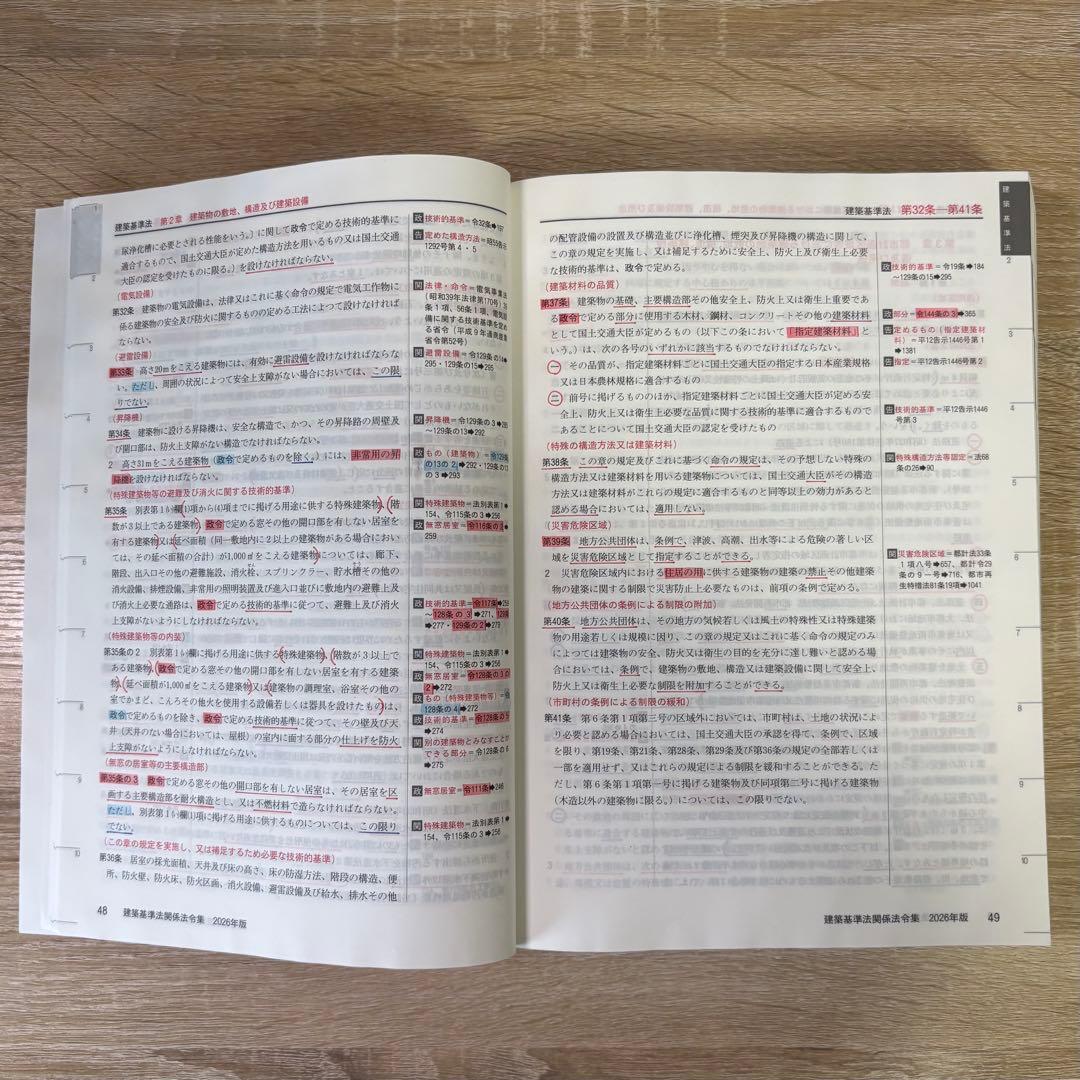 建築基準法 第2章 建築物の敷地、構造及び建築設備
尿浄化槽に必要とされる性能をいう。）に関して政令で定める技術的基準に
適合するもので、国土交通大臣が定めた構造方法を用いるもの又は国土交通
大臣の認定を受けたものに限る。）を設けなければならない。
（電気設備）
第32条 建築物の電気設備は、法律又はこれに基く命令の規定で電気工作物に
係る建築物の安全及び防火に関するものの定める工法によつて設けなければ
ならない。
（避雷設備）
第33条 高さ20mをこえる建築物には、有効に避雷設備を設けなければならな
い。ただし、周囲の状況によつて安全上支障がない場合においては、この限
りでない。
（昇降機）
第34条 建築物に設ける昇降機は、安全な構造で、かつ、その昇降路の周壁及
び開口部は、防火上支障がない構造でなければならない。
2 高さ31mをこえる建築物（政令で定めるものを除く。）には、非常用の昇
降機を設けなければならない。
（特殊建築物等の避難及び消火に関する技術的基準）
第35条 別表第1(い)欄(1)項から(4)項までに掲げる用途に供する特殊建築物、階
数が3以上である建築物、政令で定める窓その他の開口部を有しない居室を
有する建築物又は延べ面積（同一敷地内に2以上の建築物がある場合におい
ては、その延べ面積の合計）が1,000㎡をこえる建築物については、廊下、
階段、出入口その他の避難施設、消火栓、スプリンクラー、貯水槽その他の
消火設備、排煙設備、非常用の照明装置及び進入口並びに敷地内の避難上及
び消火上必要な通路は、政令で定める技術的基準に従つて、避難上及び消火
上支障がないようにしなければならない。
（特殊建築物等の内装）
第35条の2 別表第1(い)欄に掲げる用途に供する特殊建築物、階数が3以上で
ある建築物、政令で定める窓その他の開口部を有しない居室を有する建築
物、延べ面積が1,000㎡をこえる建築物又は建築物の調理室、浴室その他の
室でかまど、こんろその他火を使用する設備若しくは器具を設けたものは、
政令で定めるものを除き、政令で定める技術的基準に従つて、その壁及び天
井（天井のない場合においては、屋根）の室内に面する部分の仕上げを防火
上支障がないようにしなければならない。
（無窓の居室等の主要構造部）
第35条の3 政令で定める窓その他の開口部を有しない居室は、その居室を区
画する主要構造部を耐火構造とし、又は不燃材料で造らなければならない。
ただし、別表第1(い)欄(1)項に掲げる用途に供するものについては、この限り
でない。
（この章の規定を実施し、又は補足するため必要な技術的基準）
第36条 居室の採光面積、天井及び床の高さ、床の防湿方法、階段の構造、便
所、防火壁、防火床、防火区画、消火設備、避雷設備及び給水、排水その他
政 技術的基準＝令32条➡157
告 定めた構造方法＝昭55告示
1292号第4・5
関 法律・命令＝電気事業法
（昭和39年法律第170号）3
条1項、56条1項、電気設
備に関する技術基準を定め
る省令（平成9年通商産業
省令第52号）
関 避雷設備＝令129条の14➡
295・129条の15➡295
関 昇降機＝令129条の3➡285
～129条の13➡292
政 もの（建築物）＝令129条
の13の2➡292・129条の13
の3➡293
関 特殊建築物＝法別表第1➡
154、令115条の3➡256
政 無窓居室＝令116条の2➡
259
政 技術的基準＝令117条➡259
～128条の3➡271、129条
➡277・129条の2➡279
関 特殊建築物＝法別表第1➡
154、令115条の3➡256
政 無窓居室＝令128条の3の
2➡272
政 もの（特殊建築物等）＝令
128条の4➡272
政 技術的基準＝令128条の5
➡274
関 別の建築物とみなすことが
できる部分＝令128条の6
➡275
政 無窓居室＝令111条➡246
関 特殊建築物＝法別表第1➡
154、令115条の3➡256
48 建築基準法関係法令集 2026年版
建築基準法 第32条―第41条
の配管設備の設置及び構造並びに浄化槽、煙突及び昇降機の構造に関して、
この章の規定を実施し、又は補足するために安全上、防火上及び衛生上必要
な技術的基準は、政令で定める。
（建築材料の品質）
第37条 建築物の基礎、主要構造部その他安全上、防火上又は衛生上重要であ
る政令で定める部分に使用する木材、鋼材、コンクリートその他の建築材料
として国土交通大臣が定めるもの（以下この条において「指定建築材料」と
いう。）は、次の各号のいずれかに該当するものでなければならない。
一 その品質が、指定建築材料ごとに国土交通大臣の指定する日本産業規格
又は日本農林規格に適合するもの
二 前号に掲げるもののほか、指定建築材料ごとに国土交通大臣が定める安
全上、防火上又は衛生上必要な品質に関する技術的基準に適合するもので
あることについて国土交通大臣の認定を受けたもの
（特殊の構造方法又は建築材料）
第38条 この章の規定及びこれに基づく命令の規定は、その予想しない特殊の
構造方法又は建築材料を用いる建築物については、国土交通大臣がその構造
方法又は建築材料がこれらの規定に適合するものと同等以上の効力があると
認める場合においては、適用しない。
（災害危険区域）
第39条 地方公共団体は、条例で、津波、高潮、出水等による危険の著しい区
域を災害危険区域として指定することができる。
2 災害危険区域内における住居の用に供する建築物の建築の禁止その他建築
物の建築に関する制限で災害防止上必要なものは、前項の条例で定める。
（地方公共団体の条例による制限の附加）
第40条 地方公共団体は、その地方の気候若しくは風土の特殊性又は特殊建築
物の用途若しくは規模に因り、この章の規定又はこれに基く命令の規定のみ
によつては建築物の安全、防火又は衛生の目的を充分に達し難いと認める場
合においては、条例で、建築物の敷地、構造又は建築設備に関して安全上、
防火上又は衛生上必要な制限を附加することができる。
（市町村の条例による制限の緩和）
第41条 第6条第1項第三号の区域外においては、市町村は、土地の状況によ
り必要と認める場合においては、国土交通大臣の承認を得て、条例で、区域
を限り、第19条、第21条、第28条、第29条及び第36条の規定の全部若しくは
一部を適用せず、又はこれらの規定による制限を緩和することができる。た
だし、第6条第1項第一号に掲げる建築物及び同項第二号に掲げる建築物
（木造以外の建築物に限る。）については、この限りでない。
政 技術的基準＝令19条➡184
～129条の15➡295
政 部分＝令144条の3➡365
告 定めるもの（指定建築材
料）＝平12告示1446号第1
➡1381
告 指定＝平12告示1446号第2
告 技術的基準＝平12告示1446
号第3
関 特殊構造方法等認定＝法68
条の26➡90
関 災害危険区域＝都計法33条
1項八号➡657、都計令29
条の9一号➡716、都市再
生特措法81条19項➡1041
建築基準法
2
3
4
5
6
7
8
9
10
建築基準法関係法令集 2026年版 49